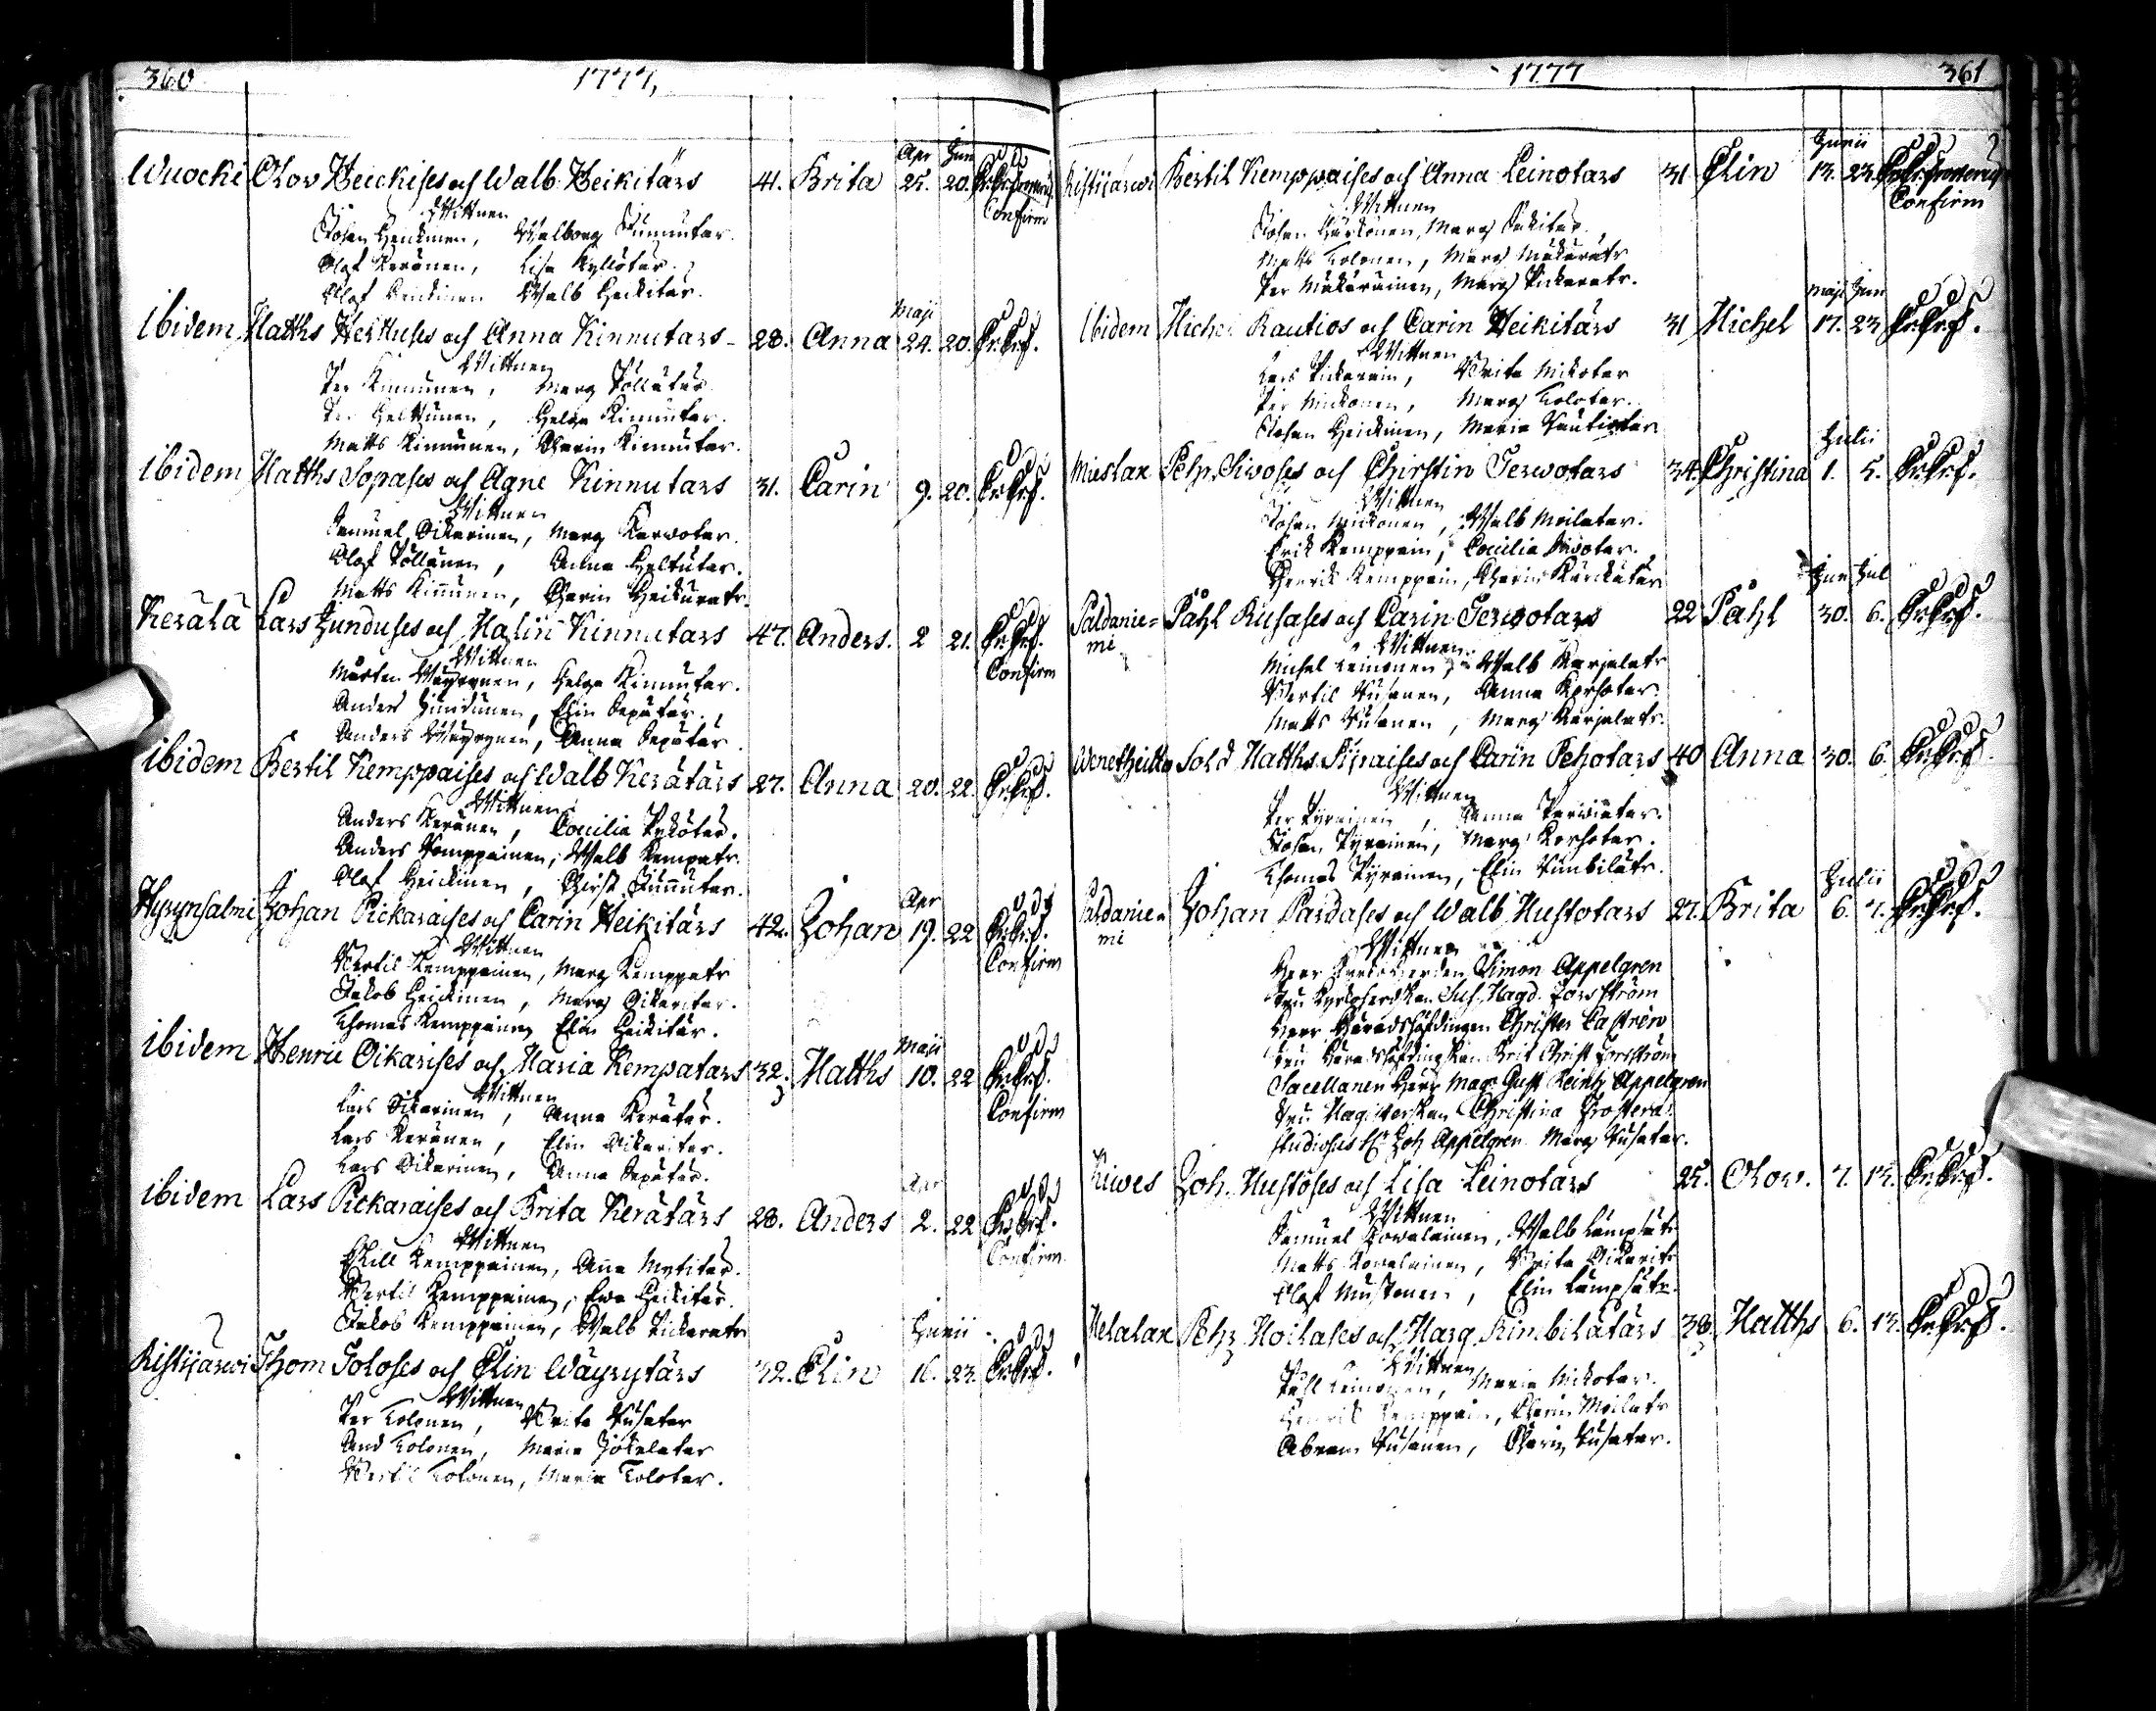 360
1777,
Apr Jun
Wuocki Olov Heickises och Walb. Heikitärs 41. Brita 25. 20.
Confirm
Wittnen
Johan Heickinen, Walborg
Olof Keränen, Lisa Kyllötar.
Olof Heickinen Walb Heikitär.
Maji
Ibidem Matths Herttuses och Anna Kinnutars 28. Anna 24. 20.
Wittnen
Per Kinnunen, Marg Pöllätär
Per Helttunen, Helga Kinnutar.
Matts Kinnunen, Charin Kinnutar.
ibidem Matths Sopases och Agne Kinnutars 31. Carin 9. 20.
Wittnen
Samuel Oikarinen, Marg Karwotar.
Olof Pöllänen, Anna Heltutar.
Matts Kinnunen, Charin
Kerälä Lars Junduses och Malin Kinnutars 47. Anders. 2 21.
Confirm
Wittnen
Mårten Wäyrynen, Helga Kinnutar.
Anders Juntunen, Elin Sepätär.
Anders Wäyrynen, Anna Sepätär.
ibidem Bertil Kemppaises och Walb Kerätärs 27. Anna 20. 22.
Wittnen
Anders Keränen, Coecilia
Anders Komppainen, Walb Kempatr.
Olof Heickinen, Christ Junnutar.
Apr
Hyrynsalmi Johan Pickaraises och Carin Heikitärs 42. Johan 19. 22
Confirm
Wittnen
Bertil Kemppainen, Marg Kemppatr
Jakob Heickinen, Marg Oikaritar.
Thomas Kemppainen Elin Heikitär.
Maji
ibidem Henric Oikarises och Maria Kempatars 32. Matths 10. 22
Confirm
Wittnen
Lars Oikarinen, Anna Kerätär.
Lars Keränen, Elin Oikaritar.
Lars Oikarinen, Anna Sepätär.
Apr
ibidem Lars Pickaraises och Brita Kerätärs 28. Anders 2. 22
Confirm.
Wittnen
Kemppainen, Anna
Bertil Kemppainen, Ewa Heikitär.
Jakob Kemppainen, Walb Pickaratr
Junii
Ristijärwi Thom Toloses och Elin Wäyrytärs 32. Elin 16. 23.
Wittnen
Per Tolonen, Brita Kusatar
And Tolonen, Maria Jokelatar
Bertil Tolonen, Maria Tolotar.
1777
361
Junii
Ristijärwi Bertil Kemppaises och Anna Leinotars 31 Elin 13. 23
Confirm
Wittnen
Johan Härkönen, Marg
Matts Tolonen, Marg Mäkärätr
Per Mäkäräinen, Marg Pickaratr.
Maji Jun
Ibidem Michel Rautios och Carin Heikitärs 31 Michel 17. 23
Wittnen
Lars Pickarain, Brita Mickotar
Per Mickonen, Marg Tolotar.
Johan Heickinen, Maria Rautiotar
Julii
Mieslax Pehr Siwoses och Christin Terwotars 34. Christina 1. 5.
Wittnen
Johan Mickonen, Walb Moilatar.
Erik Kemppain, Coecilia Siwotar.
Henrik Kemppain, Charin
Jun Jul
Paldanie=
mi Påhl Kusases och Carin Terwotars 22 Påhl 30. 6.
Wittnen
Michel Leinonen, Walb Karjalatr
Bertil Kusanen, Anna Korhotar.
Matts Kusanen, Marg Karjalatr.
Wenetheitto Sold Matths Pijraises och Carin Pehotars 40 Anna 30. 6.
Wittnen
Per Pyrainen, Anna
Johan Pyrainen, Marg Korhotar.
Thomas Pyrainen, Elin Kimbilätr.
Julii
Paldanie=
mi Johan Pardases och Walb Mustotars 27. Brita 6. 7.
Wittnen
Herr Kyrkoherden Simon Appelgren
Fru Kyrkoherdskan Sus. Magd. Forsström
Herr Häradshöfdingen Christer Castrén
Fru Häradshöfdingskan Brit Christ Forsström
Sacellanen Herr Mag. Gust Reinh Appelgren
Fru Magisterskan Christina Frosterus
Studiosus Hr Joh Appelgren Marg Kusatar.
Kiwes Joh. Mustoses och Lisa Leinotars 25. Olov. 7. 13.
Wittnen
Samuel Kowalainen, Walb Lämpsätr
Matts Kowalainen, Brita Oikaritr
Olof Mustonen, Elin Lämpsätr.
Melalax Pehr Moilases och Marg. Kimbilätärs 38. Matths 6. 13.
Wittnen
Påhl Leinonen, Maria Mickotar.
Henrik Kemppain, Charin Moilatr
Abram Kusanen, Charin Kusatar.